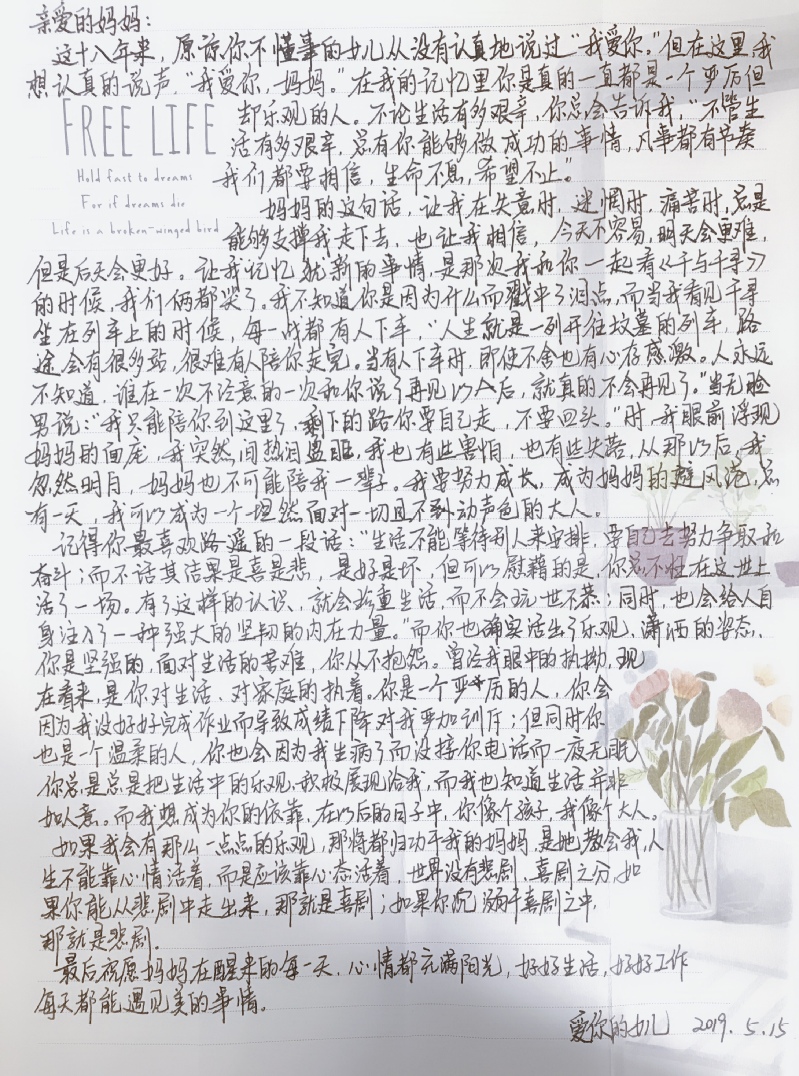 亲爱的妈妈：
这十八年来，原谅你不懂事的女儿从没有认真地说过“我爱你。”但在这里，我
想认真的说声，“我爱你，妈妈。”在我的记忆里你是真的一直都是一个严厉但
却乐观的人。不论生活有多艰辛，你总会告诉我，“不管生
活有多艰辛，总有你能够做成功的事情，凡事都有节奏
我们都要相信，生命不息，希望不止。”
FREE LIFE
Hold fast to dreams
For if dreams die
Life is a broken-winged bird
妈妈的这句话，让我在失意时，迷惘时，痛苦时，总是
能够支撑我走下去，也让我相信，今天不容易，明天会更难，
但是后天会更好。让我记忆犹新的事情，是那次我和你一起看《千与千寻》
的时候，我们俩都哭了。我不知道你是因为什么而戳中了泪点，而当我看见千寻
坐在列车上的时候，每一站都有人下车，“人生就是一列开往坟墓的列车，路
途会有很多站，很难有人陪你走完。当有人下车时，即使不舍也有心存感激。人永远
不知道，谁在一次不注意的一次和你说了再见以后，就真的不会再见了。”当无脸
男说：“我只能陪你到这里了，剩下的路你要自己走，不要回头。”时，我眼前浮现
妈妈的面庞，我突然间热泪盈眶，我也有些害怕，也有些失落，从那以后，我
忽然明白，妈妈也不可能陪我一辈子。我要努力成长，成为妈妈的避风港，总
有一天，我可以成为一个坦然面对一切且不动声色的大人。
记得你最喜欢路遥的一段话：“生活不能等待别人来安排，要自己去努力争取和
奋斗；而不话其结果是喜是悲，是好是坏，但可以慰藉的是，你总不枉在这世上
活了一场。有了这样的认识，就会珍重生活，而不会玩世不恭；同时，也会给人自
身注入了一种强大的坚韧的内在力量。”而你也确实活出了乐观、潇洒的姿态，
你是坚强的，面对生活的苦难，你从不抱怨。曾经我眼中的执拗，现
在看来，是你对生活、对家庭的执着。你是一个严厉的人，你会
因为我没好好完成作业而导致成绩下降对我严加训斥；但同时你
也是一个温柔的人，你也会因为我生病了而没接你电话而一夜无眠
你总是总是把生活中的乐观、积极展现给我，而我也知道生活并非
如人意。而我想成为你的依靠，在以后的日子中，你像个孩子，我像个大人。
如果我会有那么一点点的乐观，那将都归功于我的妈妈，是她教会我，人
生不能靠心情活着，而是应该靠心态活着，世界没有悲剧、喜剧之分，如
果你能从悲剧中走出来，那就是喜剧；如果你沉溺于喜剧之中，
那就是悲剧。
最后祝愿妈妈在醒来的每一天，心情都充满阳光，好好生活，好好工作
每天都能遇见美的事情。
爱你的女儿 2019.5.15